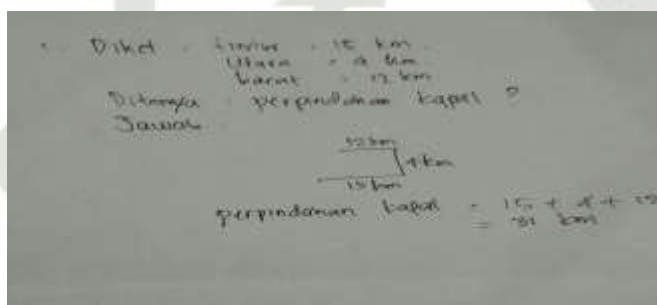 1. Diket : timur = 15 km
Utara = 4 km
barat = 12 km
Ditanya : perpindahan kapal ?
Jawab
12 km
4 km
15 km
perpindahan kapal = 15 + 4 + 12
= 31 km